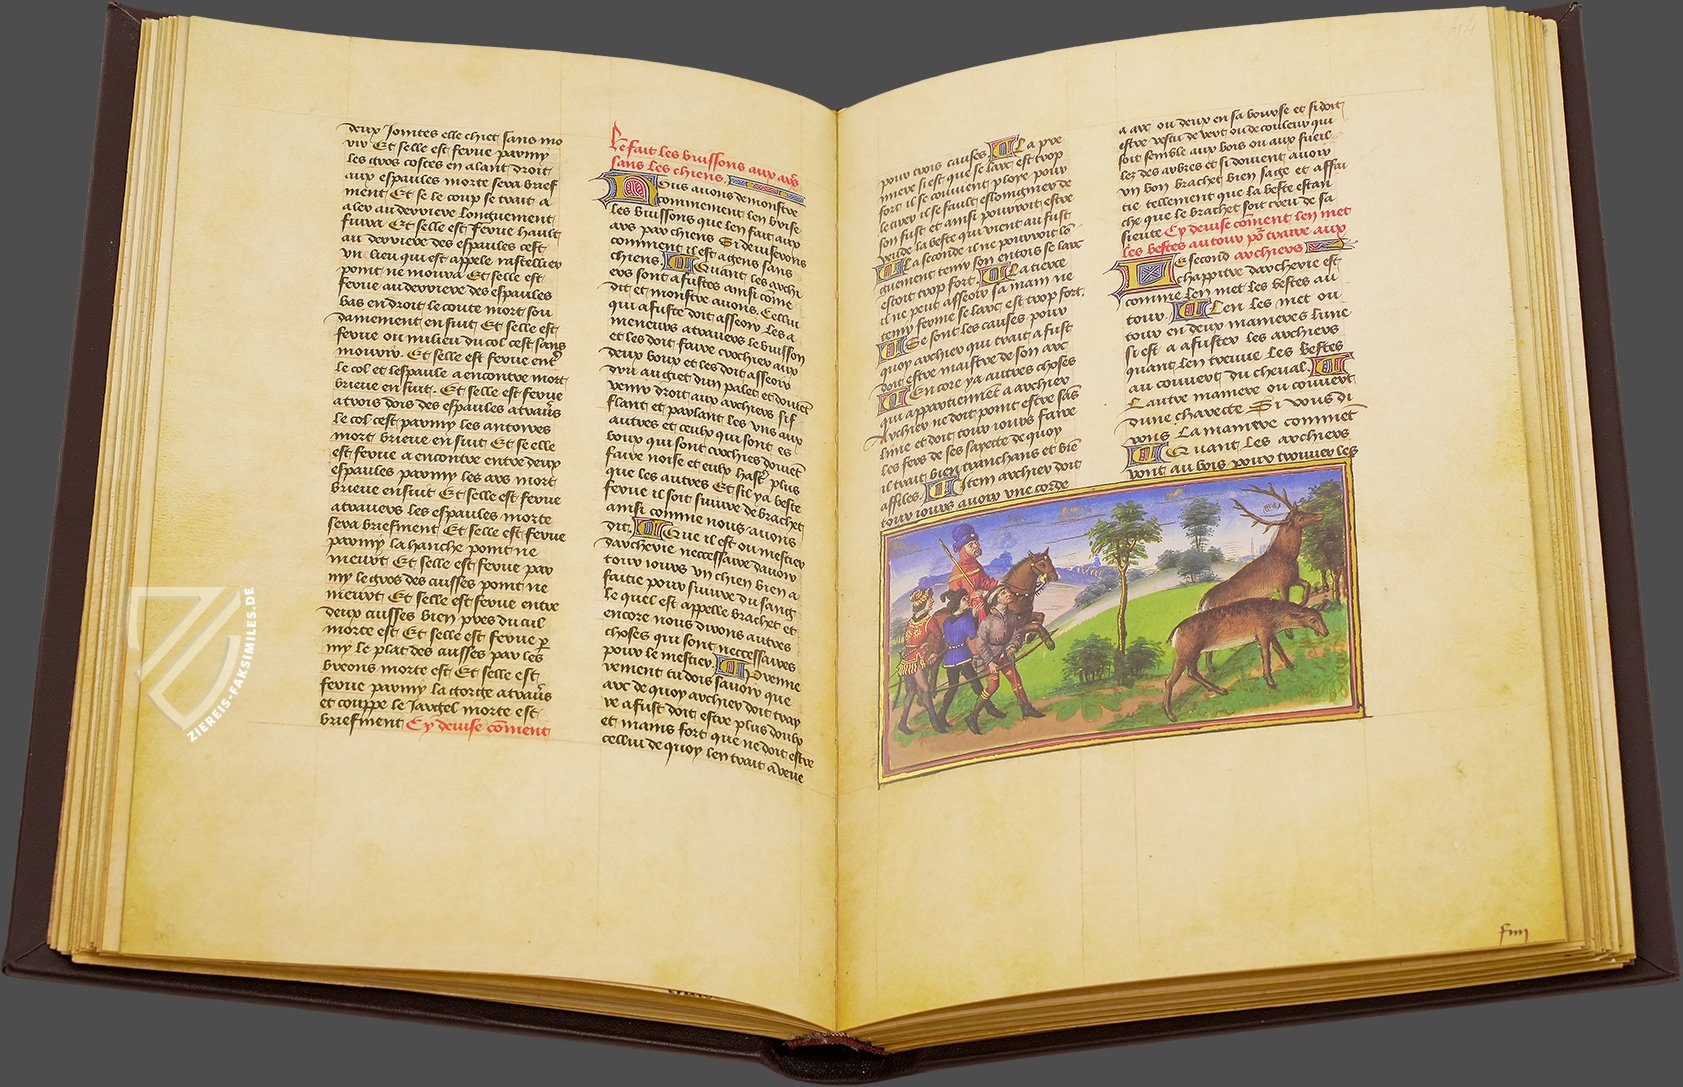 deux Jointes elle chiet sans mo
vir Et selle est ferue parmy
les gros costes en alant droit
aux espaules morte sera brief
ment Et se le coup se trait a
aler au derriere longuement
fuira Et selle est ferue hault
au derriere des espaules cest
vn lieu qui est appele rastellier
point ne mourra Et selle est
ferue au derriere des espaules
bas en droit le coute mort sou
dainement ensuit Et selle est
ferue ou milieu du col cest sans
mourir. Et selle est ferue entr
le col et lespaule a encontre mort
brieue en suit. Et selle est ferue
atrois dois des espaules atrauers
le col cest parmy les
mort brieue en suit Et se elle
est ferue a encontre entre deux
espaules parmy les ars mort
brieue ensuit Et selle est ferue
atrauers les espaules morte
sera briefment Et selle est ferue
parmy la hanche point ne
meurt Et selle est ferue par
my le gros des cuisses point ne
meurt Et selle est ferue entre
deux cuisses bien pres du cul
morte est Et selle est ferue p
my le plat des cuisses par les
breons morte est Et selle est
ferue parmy la gorge atrauers
et couppe le Jargel morte est
briefment Cy deuise coment
len fait les buissons aux ars
sans les chiens.
Nous auons demonstre
commement len boise
les buissons que len fait aux
ars par chiens Si deuiserons
comment il est a gens sans
chiens. Quant les archi
ers sont afustes ainsi come
dit et monstre auons. Cellui
qui afuste doit asseoir les a
meneurs atrauers le buisson
et les doit faire crochier aux
deux bouz et les doit asseoir
dru au giet dun palet et doiuent
venir droit aux archiers sif
flant et parlant les vns aux
autres et ceulx qui sont es
bouz qui sont crochies doiuent
faire noise et eulx haster plus
que les autres Et sil ya beste
ferue il soit suiuie de brachet
ainsi comme nous auons
dit. Que il est ou mestier
darcherie neccessaire dauoir
tout iours vn chien bien a
faitie pour suiure du sang
le quel est appelle brachet et
encore nous dirons autres
choses qui sont neccessaires
pour le mestier. Premie
rement tu dois sauoir que
arc de quoy archier doit tray
re a fust doit estre plus doulx
et mains fort que ne doit estre
cellui de quoy len trait a veue
pour trois causes La pre
miere si est que se larc est trop
fort il se conuient ploye pour
le tirer il se fault eslongnier de
son fust et ainsi pourroit estre
veu de la beste qui vient au fust
La seconde il ne pourroit lo
guement tenir son entois se larc
estoit trop fort. La tierce
il ne peut asseoir sa main ne
tenir ferme se larc est trop fort.
Ce sont les causes pour
quoy archier qui trait a fust
doit estre maistre de son arc
Encore ya autres choses
qui appartiennent a archier
Archier ne doit point estre sans
lime et doit tout iours faire
les fers de ses sayette de quoy
il trait bien tranchans et bien
affiles. Item archier doit
tout iours auoir vne corde
a arc ou deux en sa bourse et si doit
estre vestu de vert ou de couleur qui
soit semble aux bois ou aux fueil
lez des arbres et si doiuent auoir
vn bon brachet bien sage et affai
tie tellement que la beste estan
che que le brachet soit creu de sa
sieute Cy deuise coment len met
les bestes au tour por traire aux
archiers
Le second
chappitre darcherie est
comme len met les bestes au
tour. Len les met ou
tour en deux manieres lune
si est a afuster les archiers
quant len treuue les bestes
au couuert du cheual.
Lautre maniere ou couuert
dune charette Si vous di
rons la maniere comment
Quant les archiers
vont au bois pour trouuer les
ZIEREIS-FAKSIMILES.DE